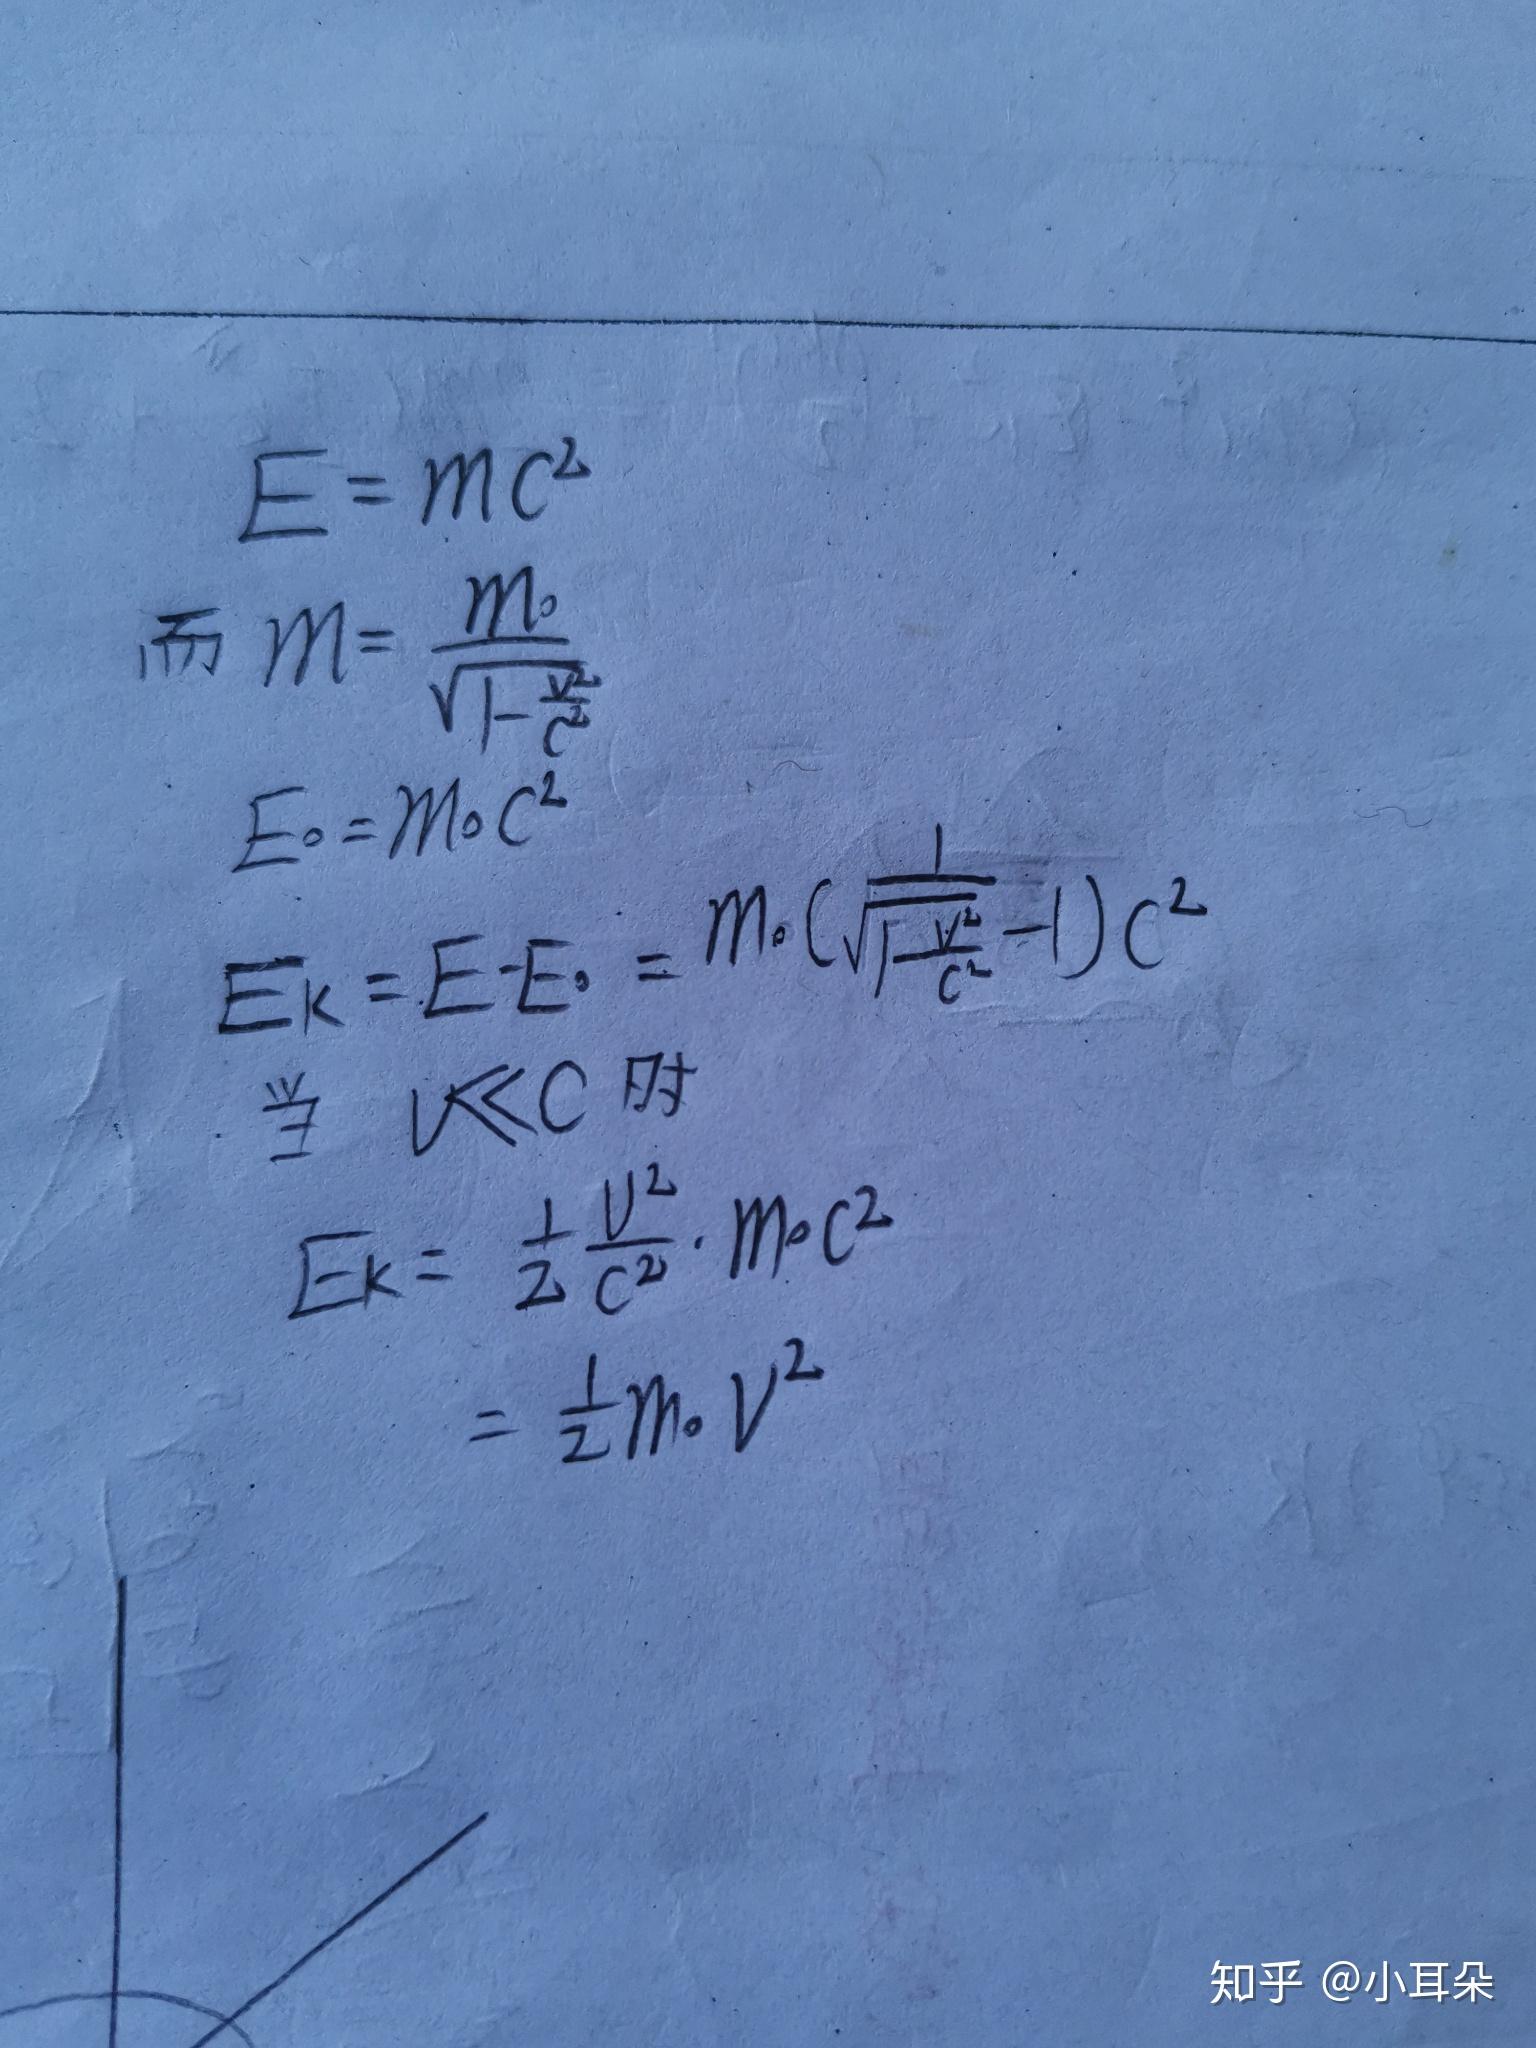 E = mc²
而 m = m₀/√(1-v²/c²)
E₀ = m₀c²
Eₖ = E-E₀ = m₀(1/√(1-v²/c²) -1)c²
当 v≪c 时
Eₖ = 1/2 v²/c² · m₀c²
= 1/2 m₀v²
知乎 @小耳朵